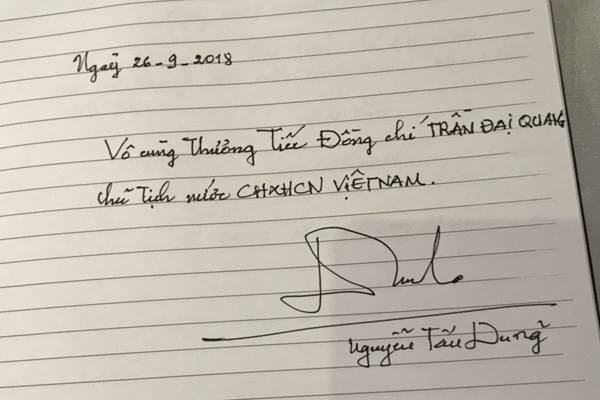 Ngaỳ 26-9-2018
Vô cùng Thương Tiếc Đồng chí TRẦN ĐẠI QUANG
chủ Tịch nước CHXHCN VIỆTNAM.
Nguyễn Tấn Dũng